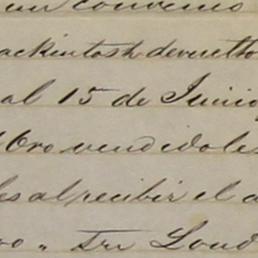 un convenio
ackintosh devuelto
al 15 de Junio,
vendidoles
es al recibir el a